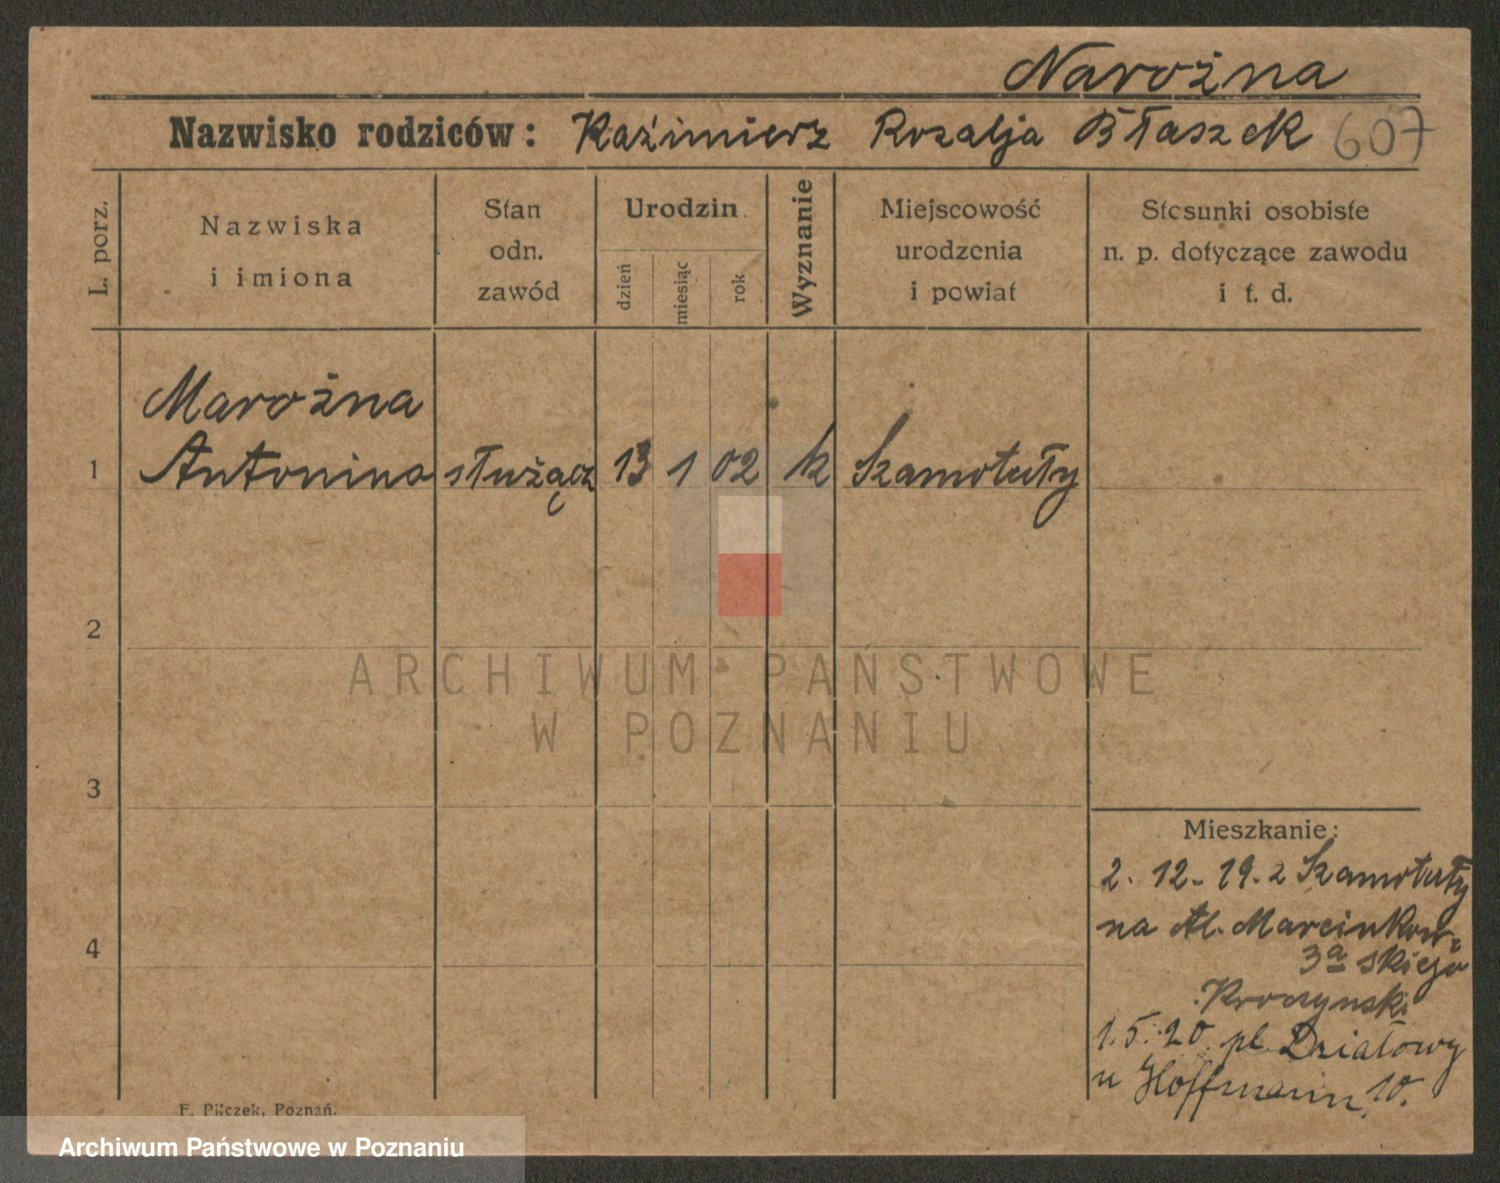 Narożna
Nazwisko rodziców: Kaźimierz Rozalja Błaszek 607
L. porz.
Nazwiska
i imiona
Stan
odn.
zawód
Urodzin
dzień
miesiąc
rok
Wyznanie
Miejscowość
urodzenia
i powiat
Stosunki osobiste
n. p. dotyczące zawodu
i t. d.
Marożna
1 Antonina służącz 13 1 02 k Szamotuły
2
3
4
Mieszkanie:
2. 12. 19. z Szamotuły
na Al. Marcinkow=
3a skiego
1. 5. 20. pl. Działowy
u Hoffmann 10.
F. Pilczek, Poznań.
ARCHIWUM PAŃSTWOWE
W POZNANIU
Archiwum Państwowe w Poznaniu